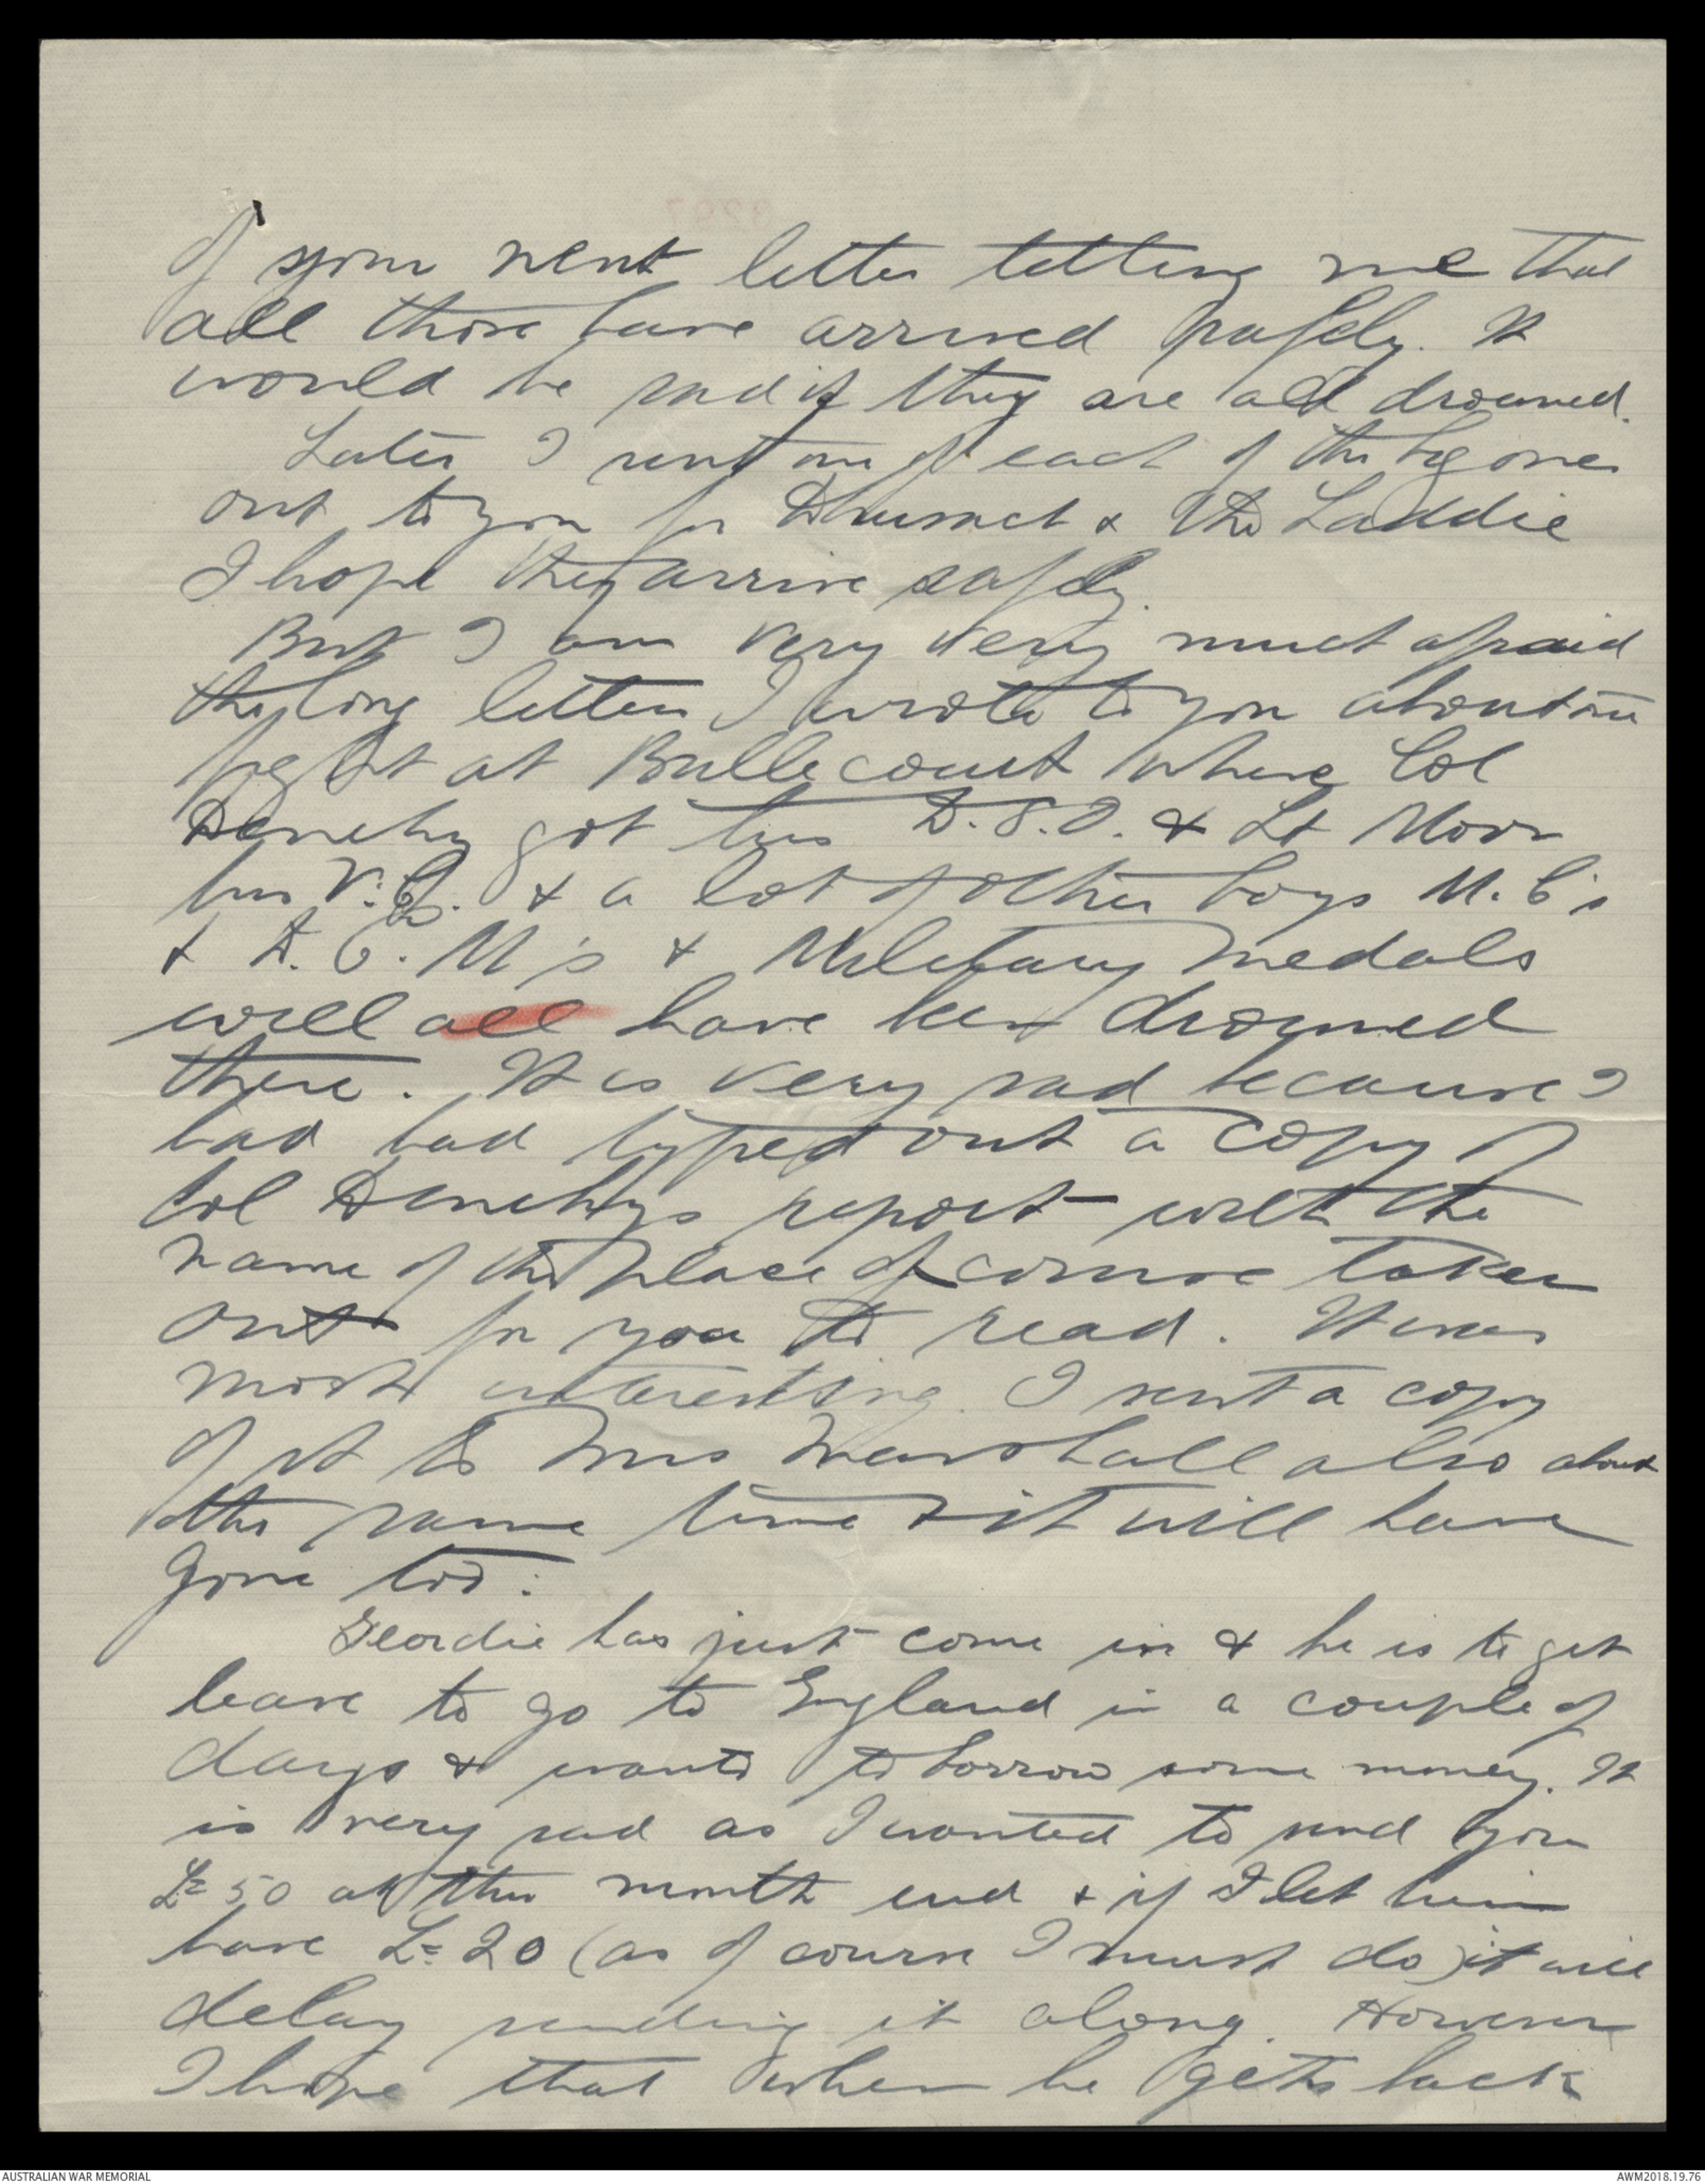 of your next letter telling me that
all those have arrived safely. It
would be sad if they are all drowned.
Later I sent one of each of the big ones
out to you for & the Laddie
I hope they arrive safely.
But I am very very much afraid
the long letter I wrote to you about our
fight at Bullecourt where Col
Denehy got his D.S.O. & Lt Moon
his V.C. & a lot of other boys M.C's
& D.C.M's & Military medals
will all have been drowned
there. It is very sad because I
had had typed out a copy of
Col Denehys report with the
name of the place of course taken
out for you to read. It was
most interesting. I sent a copy
of it to Mrs Marshall also about
the same time & it will have
gone too.
Geordie has just come in & he is to get
leave to go to England in a couple of
days & wants to borrow some money. It
is very sad as I wanted to send you
£=50 at this month end & if I let him
have £=20 (as of course I must do) it will
delay sending it along. However
I hope that when he gets back
AUSTRALIAN WAR MEMORIAL
AWM2018.19.76